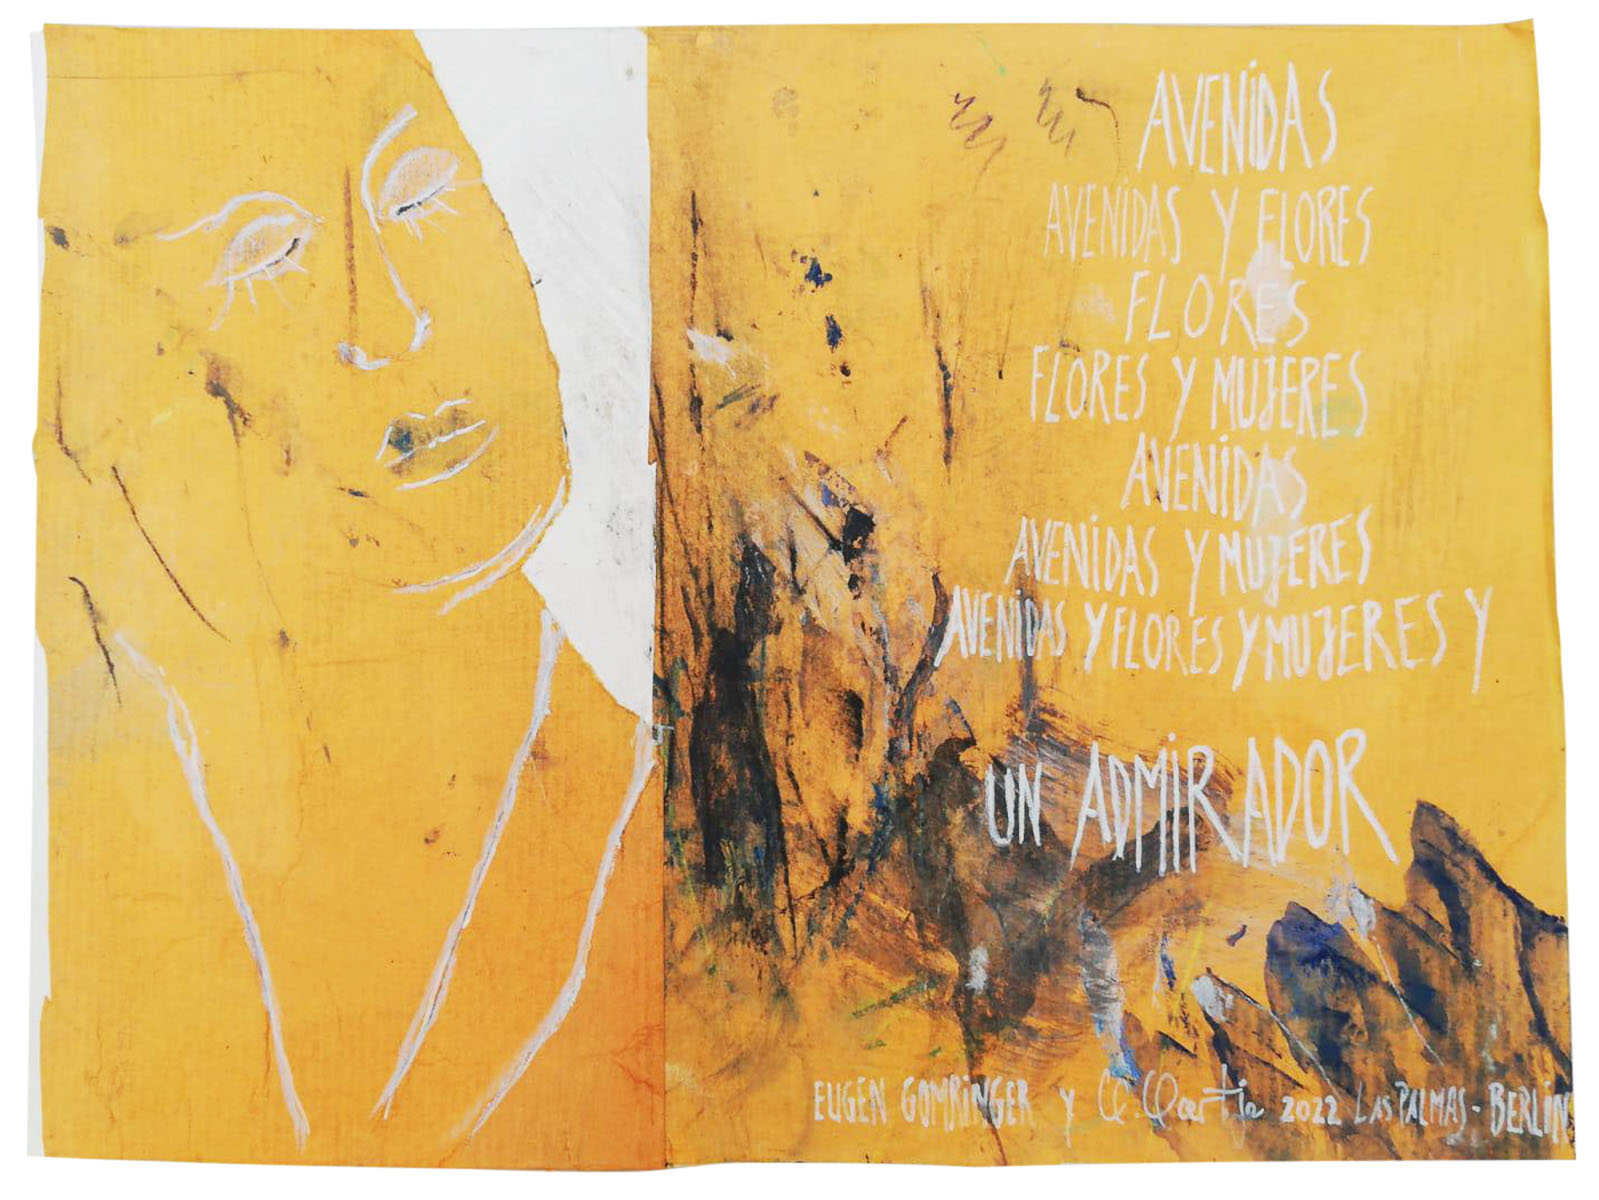 AVENIDAS
AVENIDAS Y FLORES
FLORES
FLORES Y MUJERES
AVENIDAS
AVENIDAS Y MUJERES
AVENIDAS Y FLORES Y MUJERES Y
UN ADMIRADOR
EUGEN GOMRINGER Y 2022 LAS PALMAS - BERLIN